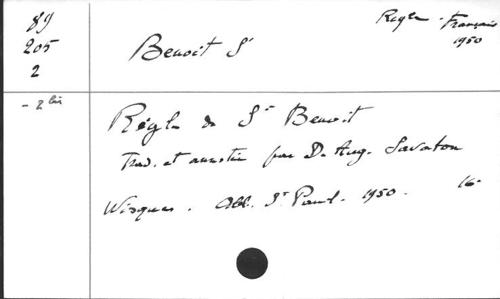 89
205
2
- 2 bis
Benoit St
Regle - Français
1950
Règle de St Benoit
Trad. et annotée par D. Aug. Savaton
Wisques. Abb. St Paul. 1950. 16°